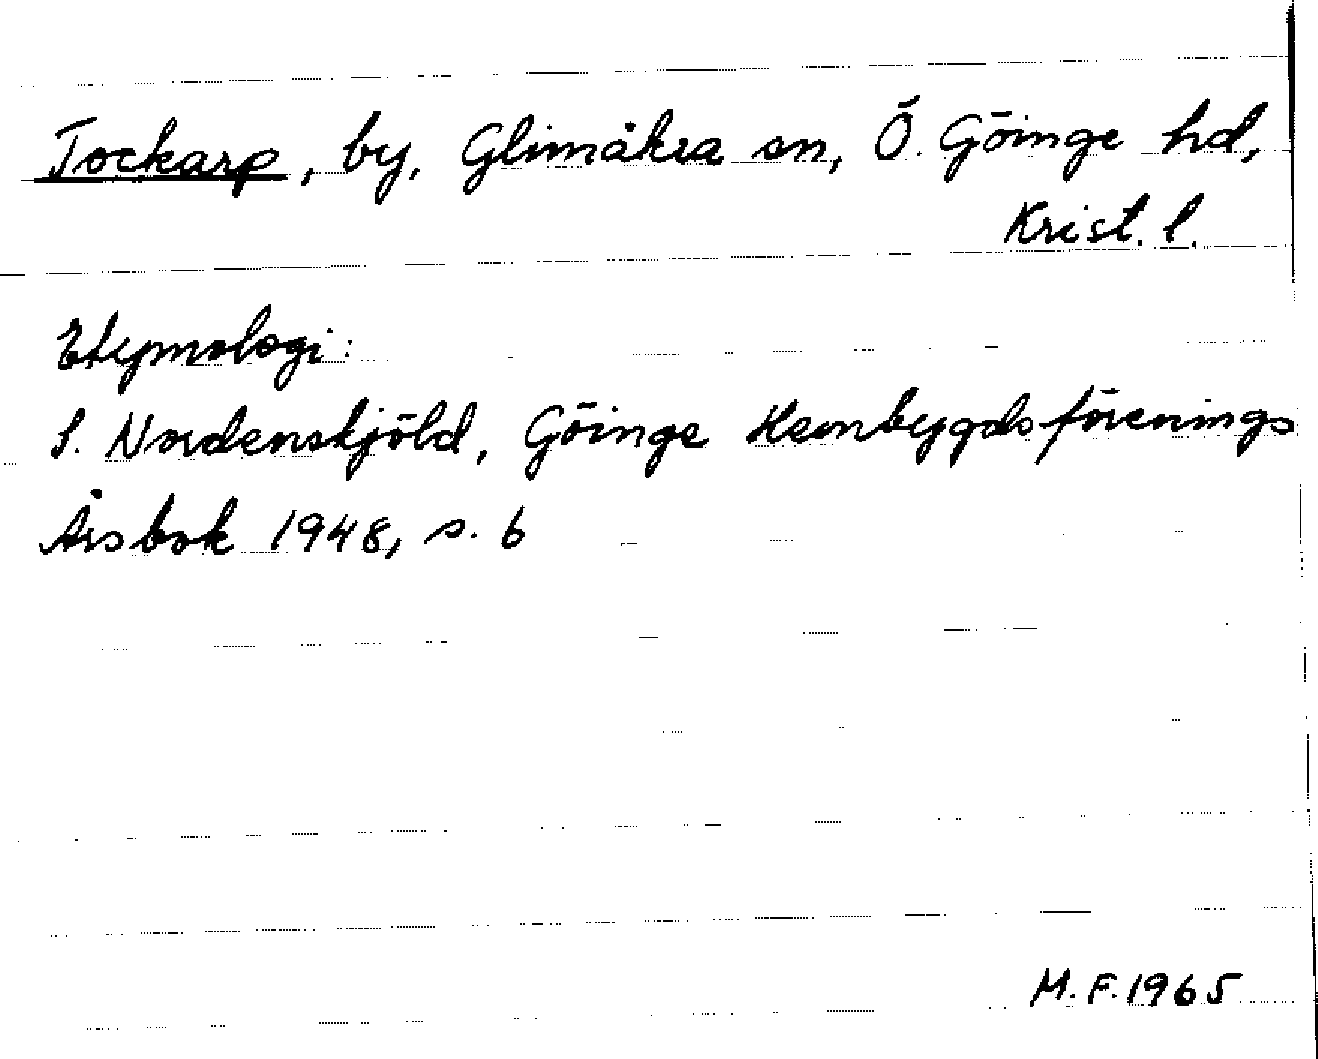 Tockarp, by, Glimåkra sn, Ö. Göinge hd,
Krist. l.
Etymologi:
S. Nordenskjöld, Göinge Hembygdsförenings
Årsbok 1948, s. 6
M.F. 1965